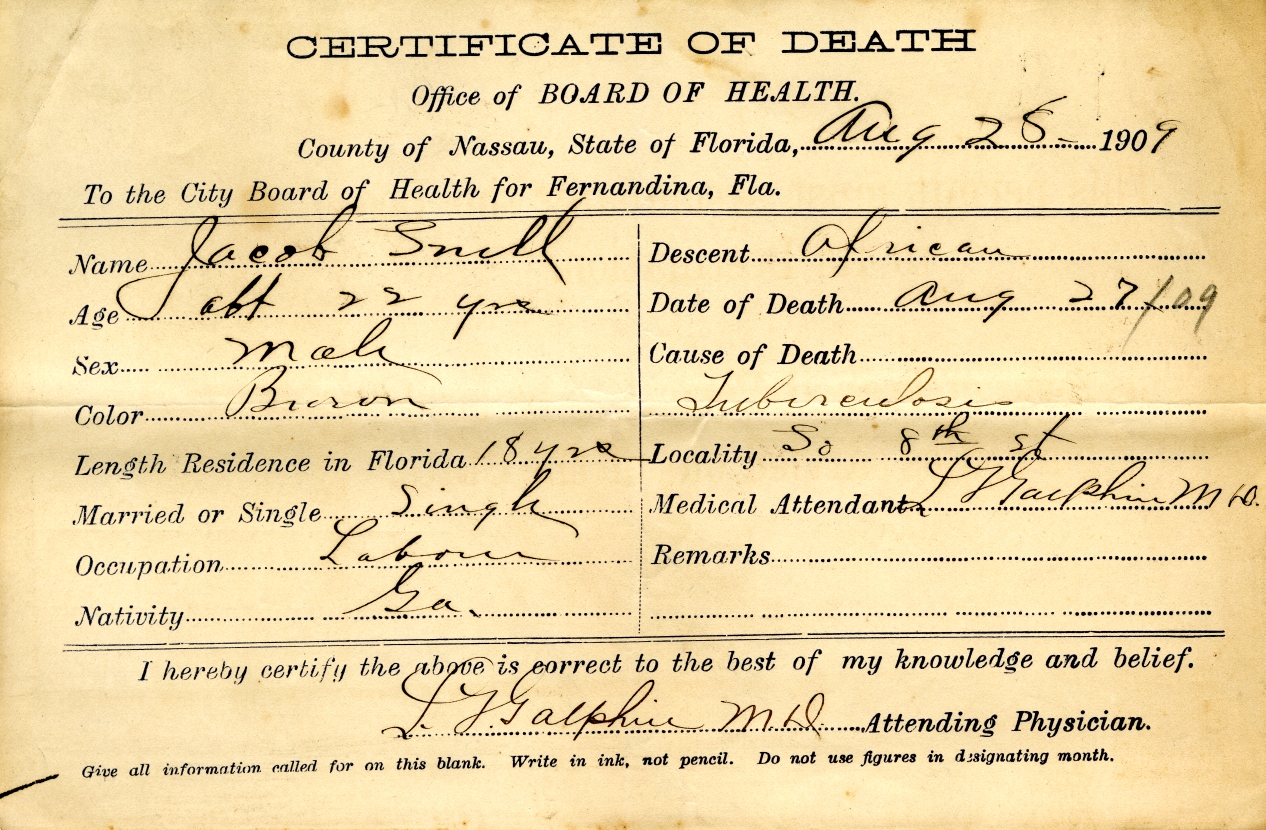 CERTIFICATE OF DEATH
Office of BOARD OF HEALTH.
County of Nassau, State of Florida, Aug 28 1909
To the City Board of Health for Fernandina, Fla.
Name Jacob Snell
Age abt 22 yrs
Sex Male
Color Brown
Length Residence in Florida 18 yrs
Married or Single Single
Occupation Labour
Nativity Ga.
Descent African
Date of Death Aug 27/09
Cause of Death
Tuberculosis
Locality So 8th st
Medical Attendant Galphin MD.
Remarks
I hereby certify the above is correct to the best of my knowledge and belief.
Galphin MD Attending Physician.
Give all information called for on this blank. Write in ink, not pencil. Do not use figures in designating month.